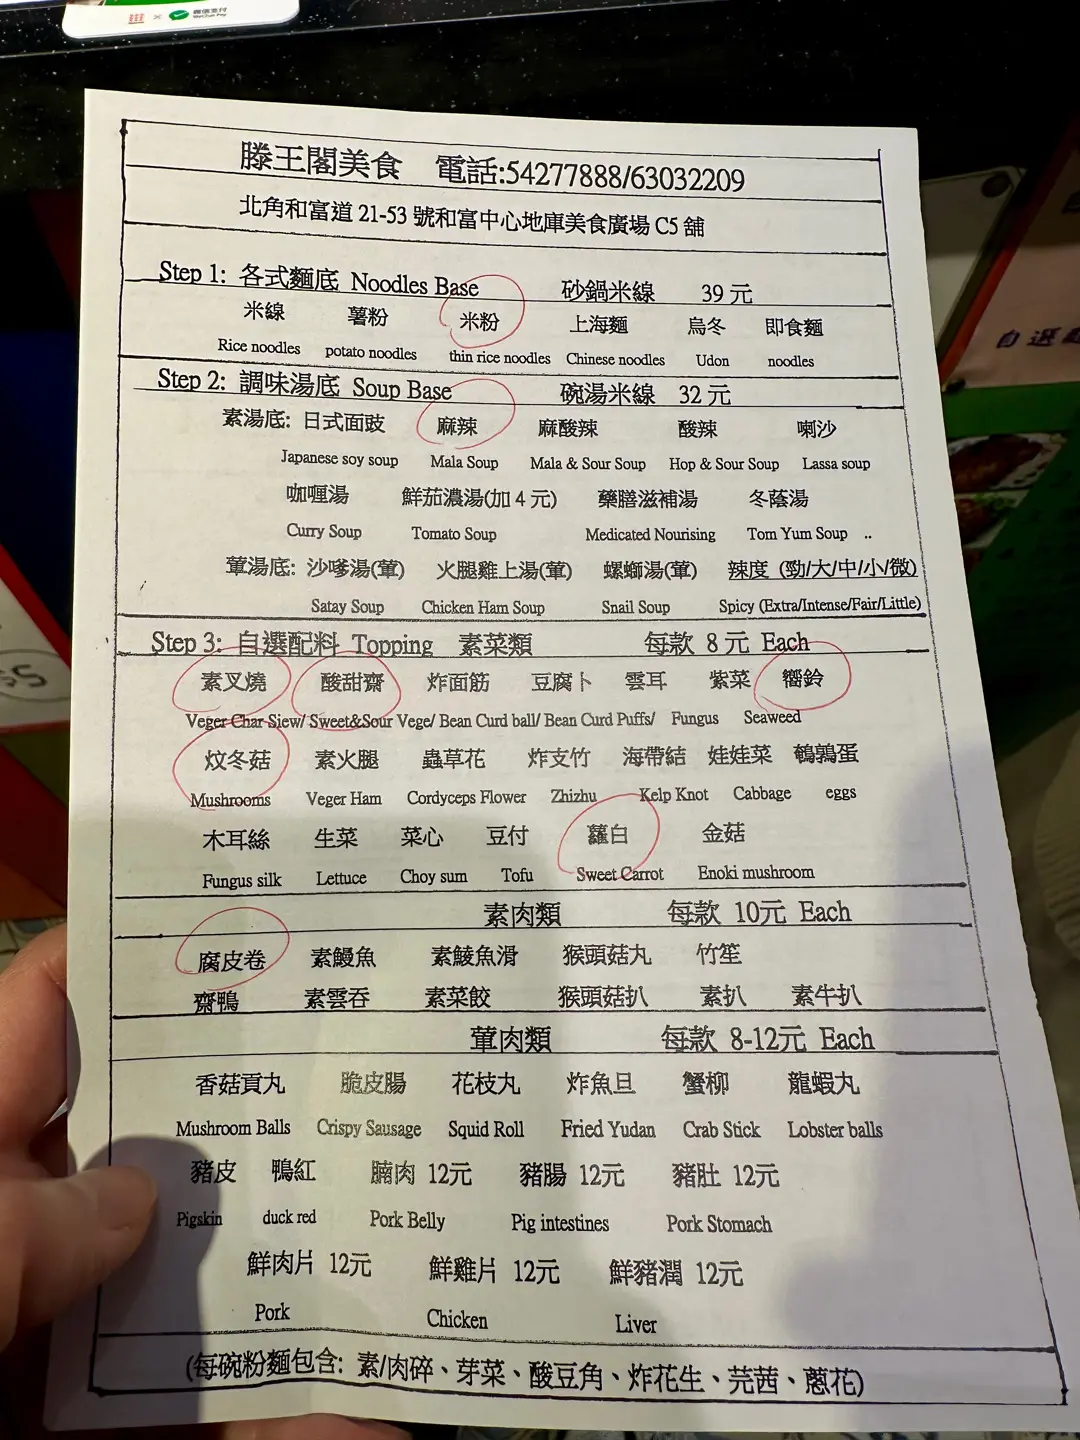 微信支付
WeChat Pay
滕王閣美食 電話:54277888/63032209
北角和富道 21-53 號和富中心地庫美食廣場 C5 舖
Step 1: 各式麵底 Noodles Base 砂鍋米線 39 元
米線 薯粉 米粉 上海麵 烏冬 即食麵
Rice noodles potato noodles thin rice noodles Chinese noodles Udon noodles
Step 2: 調味湯底 Soup Base 碗湯米線 32 元
素湯底: 日式面豉 麻辣 麻酸辣 酸辣 喇沙
Japanese soy soup Mala Soup Mala & Sour Soup Hop & Sour Soup Lassa soup
咖喱湯 鮮茄濃湯(加 4 元) 藥膳滋補湯 冬蔭湯
Curry Soup Tomato Soup Medicated Nourising Tom Yum Soup ..
葷湯底: 沙嗲湯(葷) 火腿雞上湯(葷) 螺螄湯(葷) 辣度 (勁/大/中/小/微)
Satay Soup Chicken Ham Soup Snail Soup Spicy (Extra/Intense/Fair/Little)
Step 3: 自選配料 Topping 素菜類 每款 8 元 Each
素叉燒 酸甜齋 炸面筋 豆腐卜 雲耳 紫菜 響鈴
Veger Char Siew/ Sweet&Sour Vege/ Bean Curd ball/ Bean Curd Puffs/ Fungus Seaweed
炆冬菇 素火腿 蟲草花 炸支竹 海帶結 娃娃菜 鵪鶉蛋
Mushrooms Veger Ham Cordyceps Flower Zhizhu Kelp Knot Cabbage eggs
木耳絲 生菜 菜心 豆付 蘿白 金菇
Fungus silk Lettuce Choy sum Tofu Sweet Carrot Enoki mushroom
素肉類 每款 10元 Each
腐皮卷 素鰻魚 素鯪魚滑 猴頭菇丸 竹笙
齋鴨 素雲吞 素菜餃 猴頭菇扒 素扒 素牛扒
葷肉類 每款 8-12元 Each
香菇貢丸 脆皮腸 花枝丸 炸魚旦 蟹柳 龍蝦丸
Mushroom Balls Crispy Sausage Squid Roll Fried Yudan Crab Stick Lobster balls
豬皮 鴨紅 腩肉 12元 豬腸 12元 豬肚 12元
Pigskin duck red Pork Belly Pig intestines Pork Stomach
鮮肉片 12元 鮮雞片 12元 鮮豬潤 12元
Pork Chicken Liver
(每碗粉麵包含: 素/肉碎、芽菜、酸豆角、炸花生、芫茜、蔥花)
自選